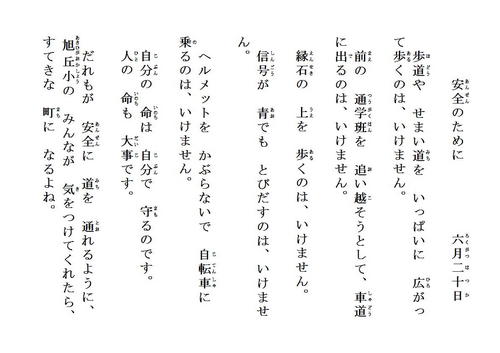 安全のために　　　六月二十日
歩道や　せまい道を　いっぱいに　広がっ
て歩くのは、いけません。
前の　通学班を　追い越そうとして、車道
に出るのは、いけません。
縁石の　上を　歩くのは、いけません。
信号が　青でも　とびだすのは、いけませ
ん。
ヘルメットを　かぶらないで　自転車に
乗るのは、いけません。
自分の　命は　自分で　守るのです。
人の　命も　大事です。
だれもが　安全に　道を　通れるように、
旭丘小の　みんなが　気をつけてくれたら、
すてきな　町に　なるよね。